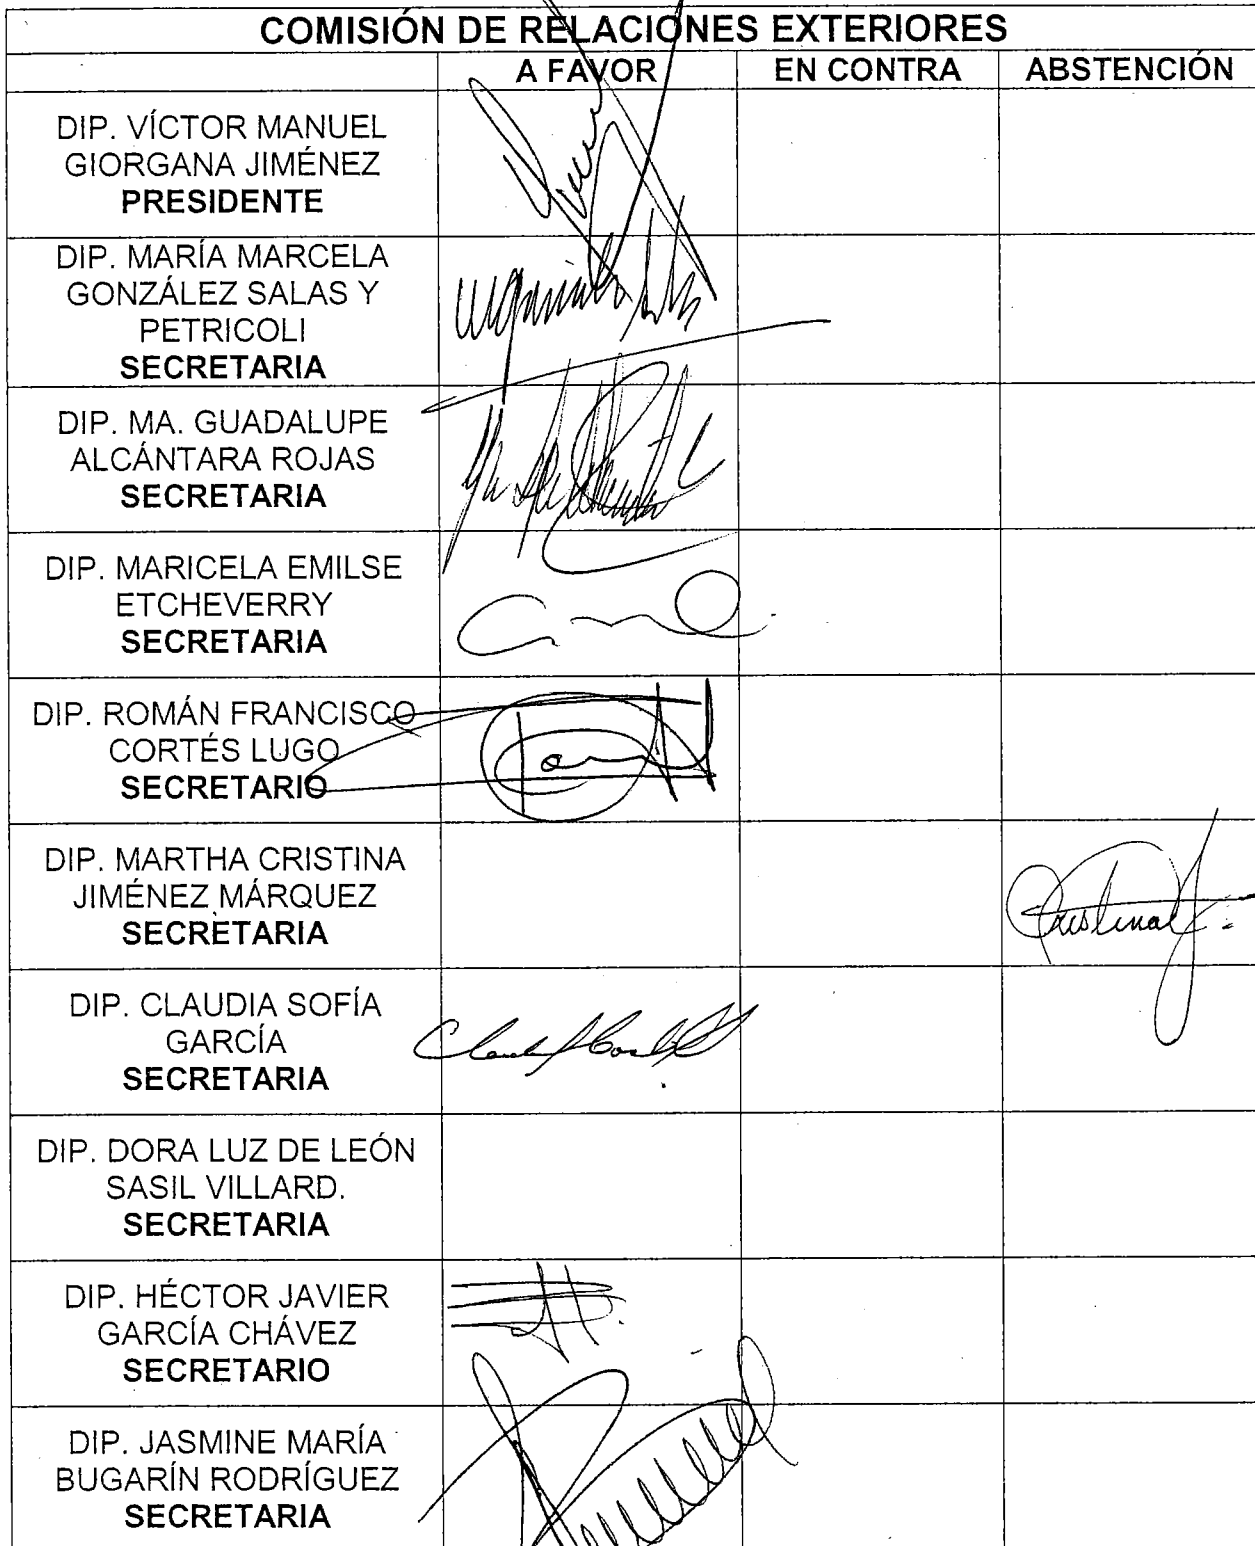 COMISIÓN DE RELACIONES EXTERIORES
A FAVOR EN CONTRA ABSTENCIÓN
DIP. VÍCTOR MANUEL
GIORGANA JIMÉNEZ
PRESIDENTE
DIP. MARÍA MARCELA
GONZÁLEZ SALAS Y
PETRICOLI
SECRETARIA
DIP. MA. GUADALUPE
ALCÁNTARA ROJAS
SECRETARIA
DIP. MARICELA EMILSE
ETCHEVERRY
SECRETARIA
DIP. ROMÁN FRANCISCO
CORTÉS LUGO
SECRETARIO
DIP. MARTHA CRISTINA
JIMÉNEZ MÁRQUEZ
SECRETARIA
Cristina J.
DIP. CLAUDIA SOFÍA
GARCÍA
SECRETARIA
DIP. DORA LUZ DE LEÓN
SASIL VILLARD.
SECRETARIA
DIP. HÉCTOR JAVIER
GARCÍA CHÁVEZ
SECRETARIO
DIP. JASMINE MARÍA
BUGARÍN RODRÍGUEZ
SECRETARIA